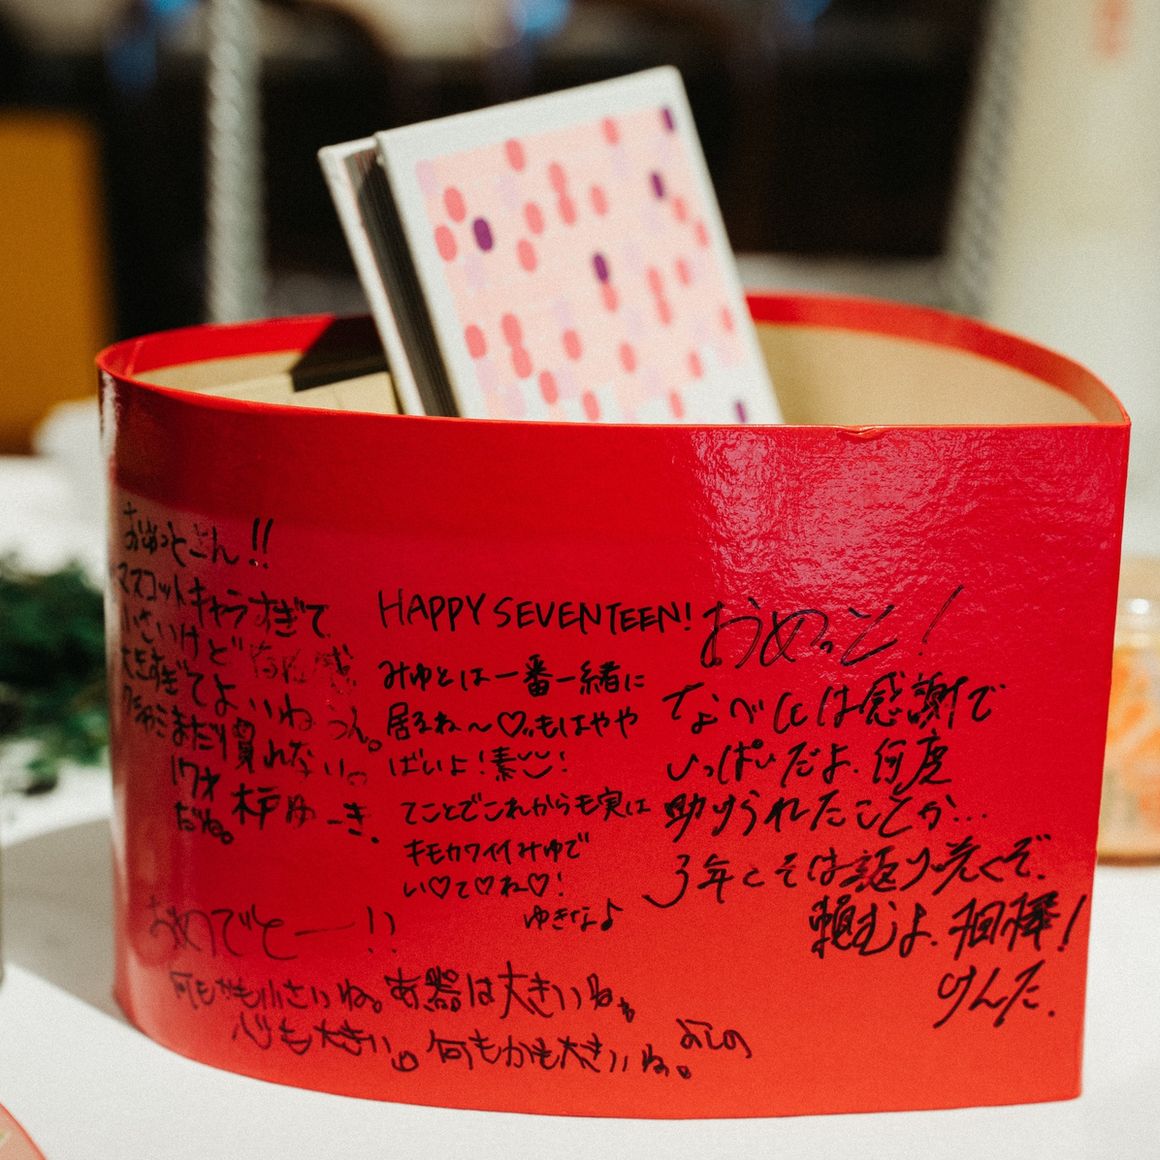 おめっとさん!!
マスコットキャラすぎて
小さいけど
大きすぎてよいね
まだ慣れない。
だね。
HAPPY SEVENTEEN!
みゆとは一番一緒に
居るね〜♡もはやや
ばいよ!素!
てことでこれからも実は
キモカワイイみゆで
い♡て♡ね♡!
ゆきなよ
おめっと!
なべには感謝で
いっぱいだよ.何度
助けられたことか...
3年こそは返り咲くぞ.
頼むよ.相棒!
けんた.
おめでとー!!
何もかも小さいね。楽器は大きいね。
も大きい。何もかも大きいね。よしの